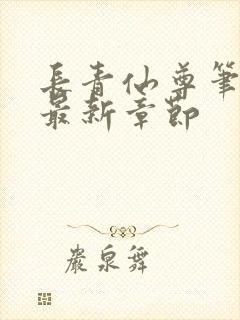 長青仙尊筆
最新章節
嚴泉舞